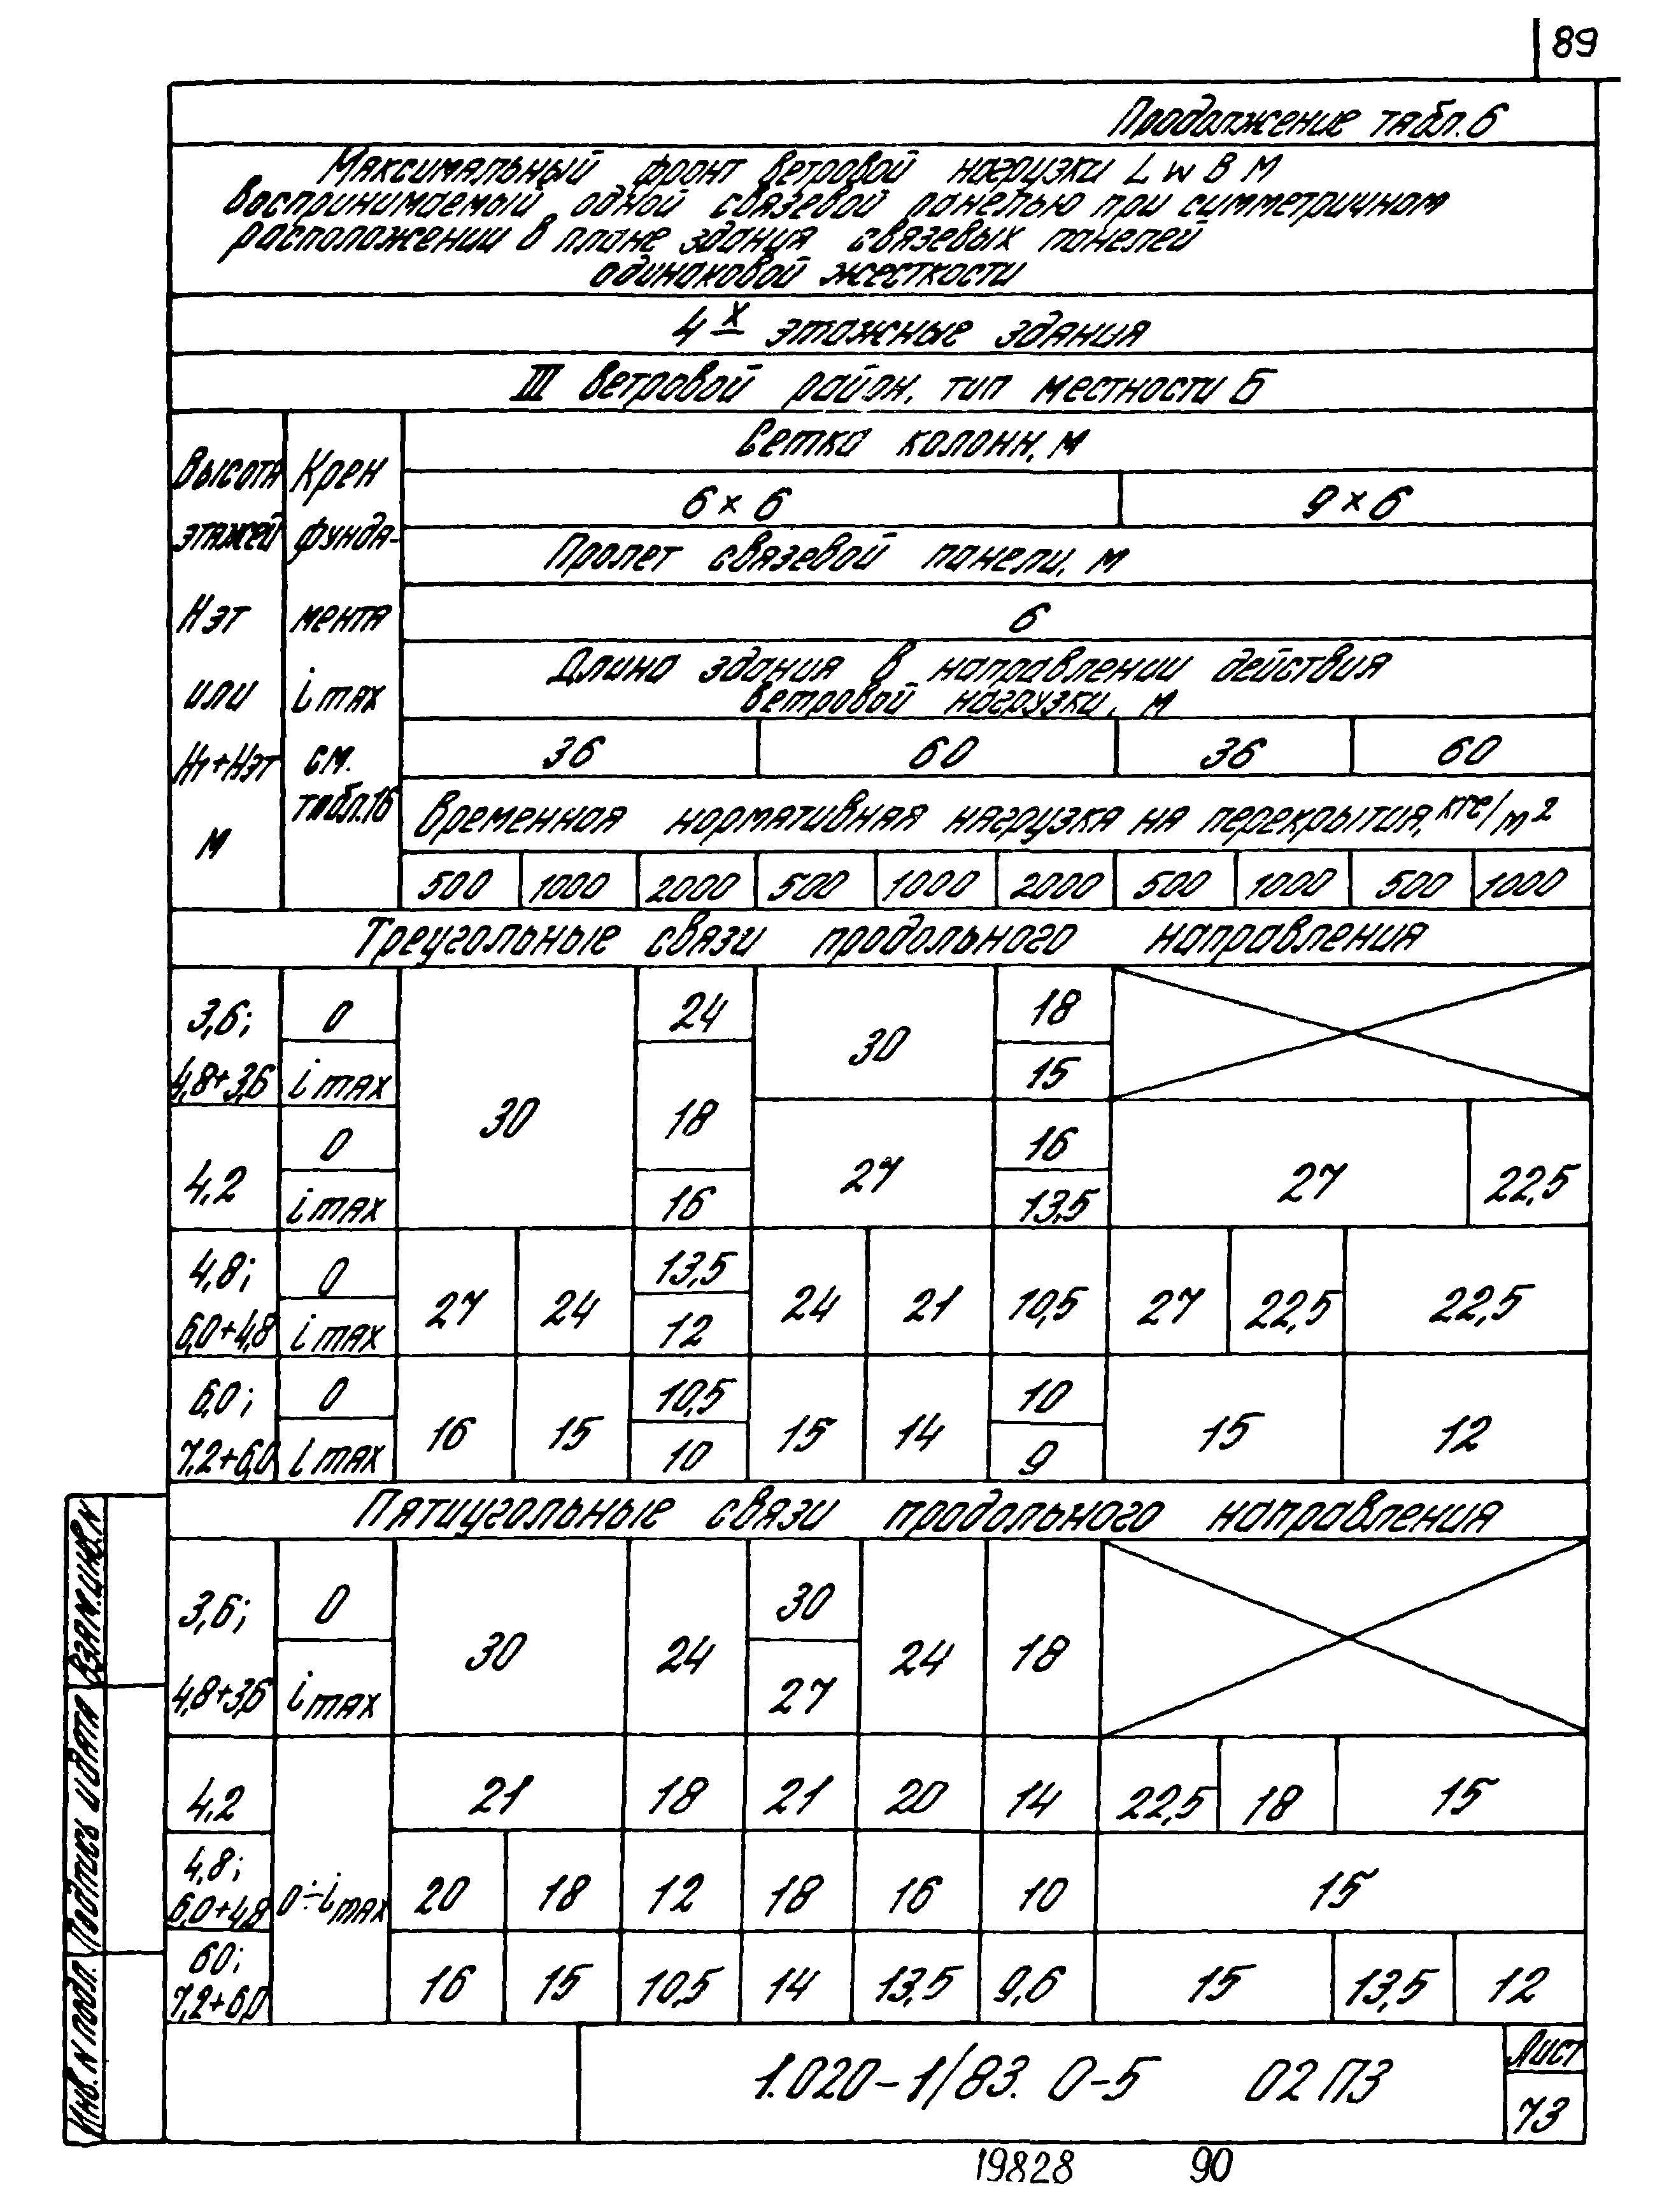 89
Продолжение табл. 6
Максимальный фронт ветровой нагрузки L w в м
воспринимаемый одной связевой панелью при симметричном
расположении в плане здания связевых панелей
одинаковой жесткости
4 х этажные здания
III ветровой район, тип местности Б
Высота этажей Нэт или Н1+Нэт м
Крен фунда-мента i max см. табл.16
Сетка колонн, м
6 × 6 9 × 6
Пролет связевой панели, м
6
Длина здания в направлении действия
ветровой нагрузки, м
36 60 36 60
Временная нормативная нагрузка на перекрытия, кгс/м2
500 1000 2000 500 1000 2000 500 1000 500 1000
Треугольные связи продольного направления
3,6; 0 24 18
30
4,8+3,6 i max 15
30 18
0 16
27 27 22,5
4,2 i max 16 13,5
4,8; 0 13,5
27 24 24 21 10,5 27 22,5 22,5
6,0+4,8 i max 12
6,0; 0 10,5 10
16 15 15 14 15 12
7,2+6,0 i max 10 9
Пятиугольные связи продольного направления
3,6; 0 30
30 24 24 18
4,8+3,6 i max 27
4,2 21 18 21 20 14 22,5 18 15
4,8;
6,0+4,8 0÷i max 20 18 12 18 16 10 15
60;
7,2+6,0 16 15 10,5 14 13,5 9,6 15 13,5 12
Взам.инв.N
Подпись и дата
Инв. N подл.
1.020-1/83. 0-5 02 ПЗ
Лист
73
19828 90